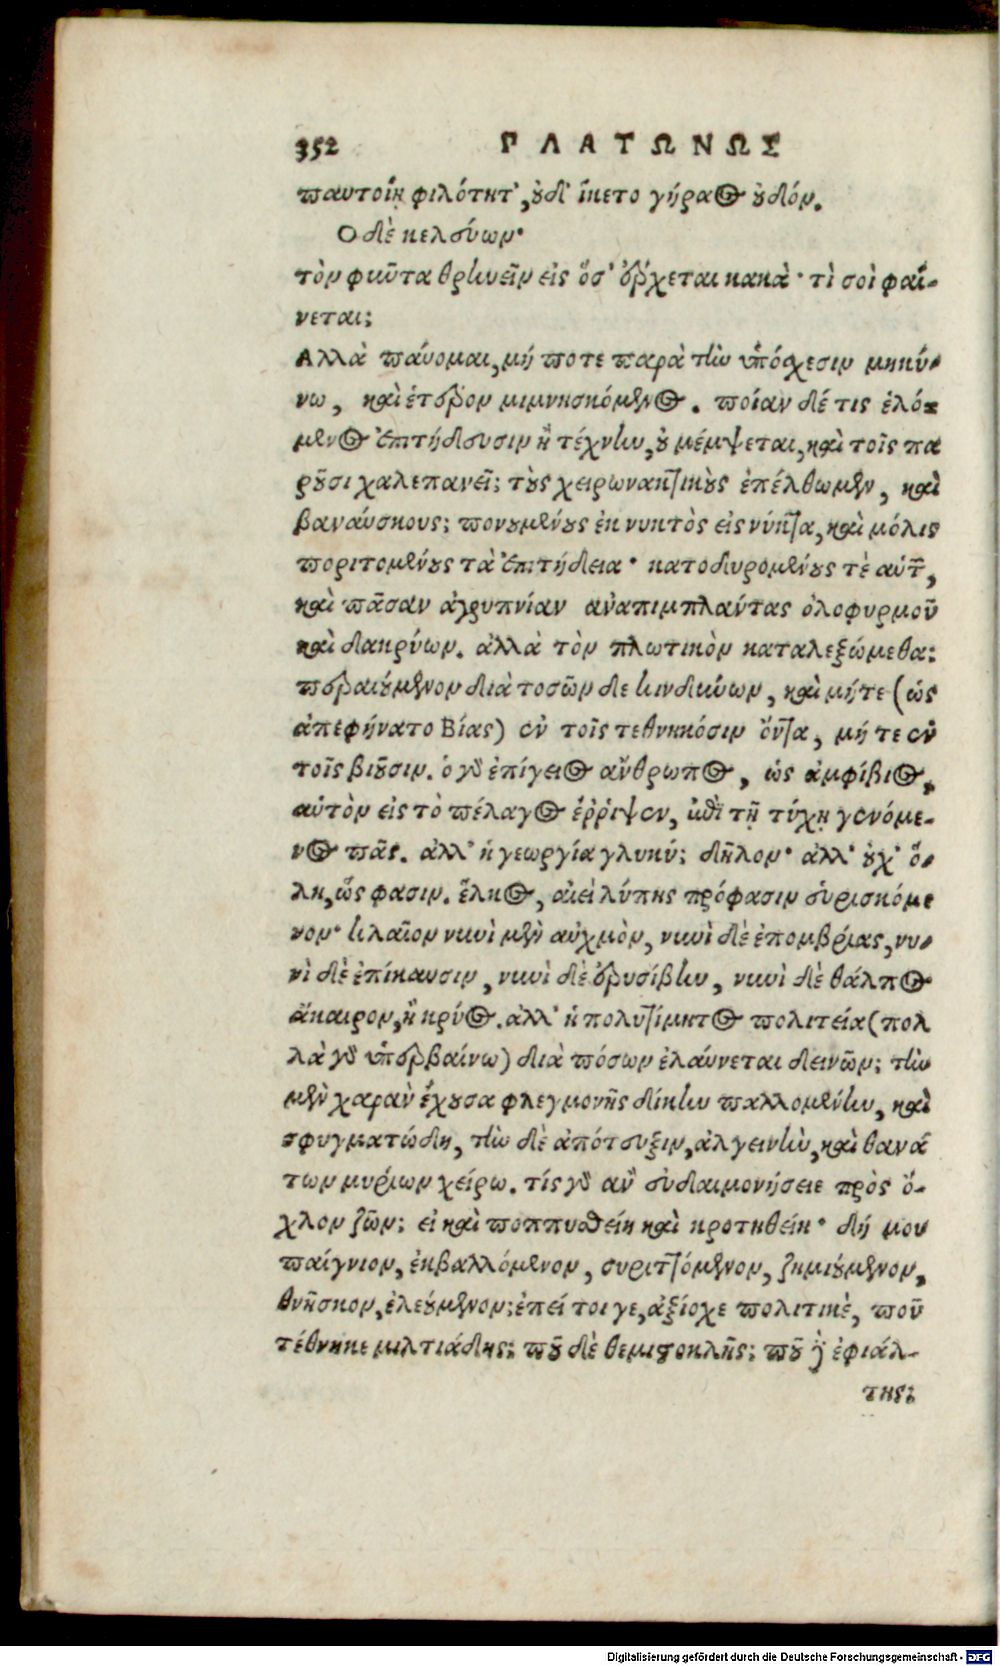 352 ΠΛΑΤΩΝΩΣ
παντοίῃ φιλότητ', οὐδ' ἵκετο γήραος οὐδόν.
Ο δὲ κελεύων·
τὸν φωῦτα θρηνεῖν εἰς ὅσ' ἔρχεται κακὰ· τὶ σοὶ φαί-
νεται;
Αλλὰ παύομαι, μή ποτε παρὰ τὴν ὑπόσχεσιν μηκύ-
νω, καὶ ἑτέρον μιμνησκόμενος. ποίαν δέ τις ἑλό-
μενος ἐπιτήδευσιν ἢ τέχνην, οὐ μέμψεται, καὶ τοῖς πα
ροῦσι χαλεπανεῖ; τοὺς χειρωνακτικοὺς ἐπέλθωμεν, καὶ
βαναύσκους; πονουμένους ἐκ νυκτὸς εἰς νύκτα, καὶ μόλις
ποριτομένους τὰ ἐπιτήδεια· κατοδυρομένους τὲ αὑτῶν,
καὶ πᾶσαν ἀγρυπνίαν ἀναπιμπλαντας ὀλοφυρμοῦ
καὶ δακρύων. ἀλλὰ τὸν πλωτικὸν καταλεξώμεθα:
περαιούμενον διὰ τοσῶν δε κινδικύων, καὶ μήτε (ὡς
ἀπεφήνατο Βίας) ἐν τοῖς τεθνηκόσιν ὄντα, μήτε ἐν
τοῖς βιοῦσιν. ὁ γὰρ ἐπίγειος ἄνθρωπος, ὡς ἀμφίβιος,
αὑτὸν εἰς τὸ πέλαγος ἐῤῥιψεν, ἐπὶ τῇ τύχῃ γενόμε-
νος πᾶς. ἀλλ' ἡ γεωργία γλυκύ; δῆλον· ἀλλ' οὐχ' ὅ-
λη, ὥς φασιν. ἕλκος, αἰεὶ λύπης πρόφασιν εὑρισκόμε
νον· κλαῖον νυνὶ μὲν αὐχμὸν, νυνὶ δὲ ἐπομβρίας, νυ-
νὶ δὲ ἐπίκαυσιν, νυνὶ δὲ ἐρυσίβην, νυνὶ δὲ θάλπος
ἄκαιρον, ἢ κρύος. ἀλλ' ἡ πολυτίμητος πολιτεία (πολ
λὰ γὰρ ὑπερβαίνω) διὰ πόσων ἐλαύνεται δεινῶν; τὴν
μὲν χαρὰν ἔχουσα φλεγμονῆς δίκην παλλομένην, καὶ
σφυγματώδη, τὴν δὲ ἀπότευξιν, ἀλγεινὴν, καὶ θανά
των μυρίων χείρω. τίς γὰρ ἂν εὐδαιμονήσειε πρὸς ὄ-
χλον ζῶν; εἰ καὶ ποππυσθείη καὶ κροτηθείη· δή μου
παίγνιον, ἐκβαλλόμενον, συριττόμενον, ζημιούμενον,
θνῆσκον, ἐλεούμενον; ἐπεί τοι γε, ἀξίοχε πολιτικὲ, ποῦ
τέθνηκε μιλτιάδης; ποῦ δὲ θεμιστοκλῆς; ποῦ δὲ ἐφιάλ-
της;
Digitalisierung gefördert durch die Deutsche Forschungsgemeinschaft - DFG